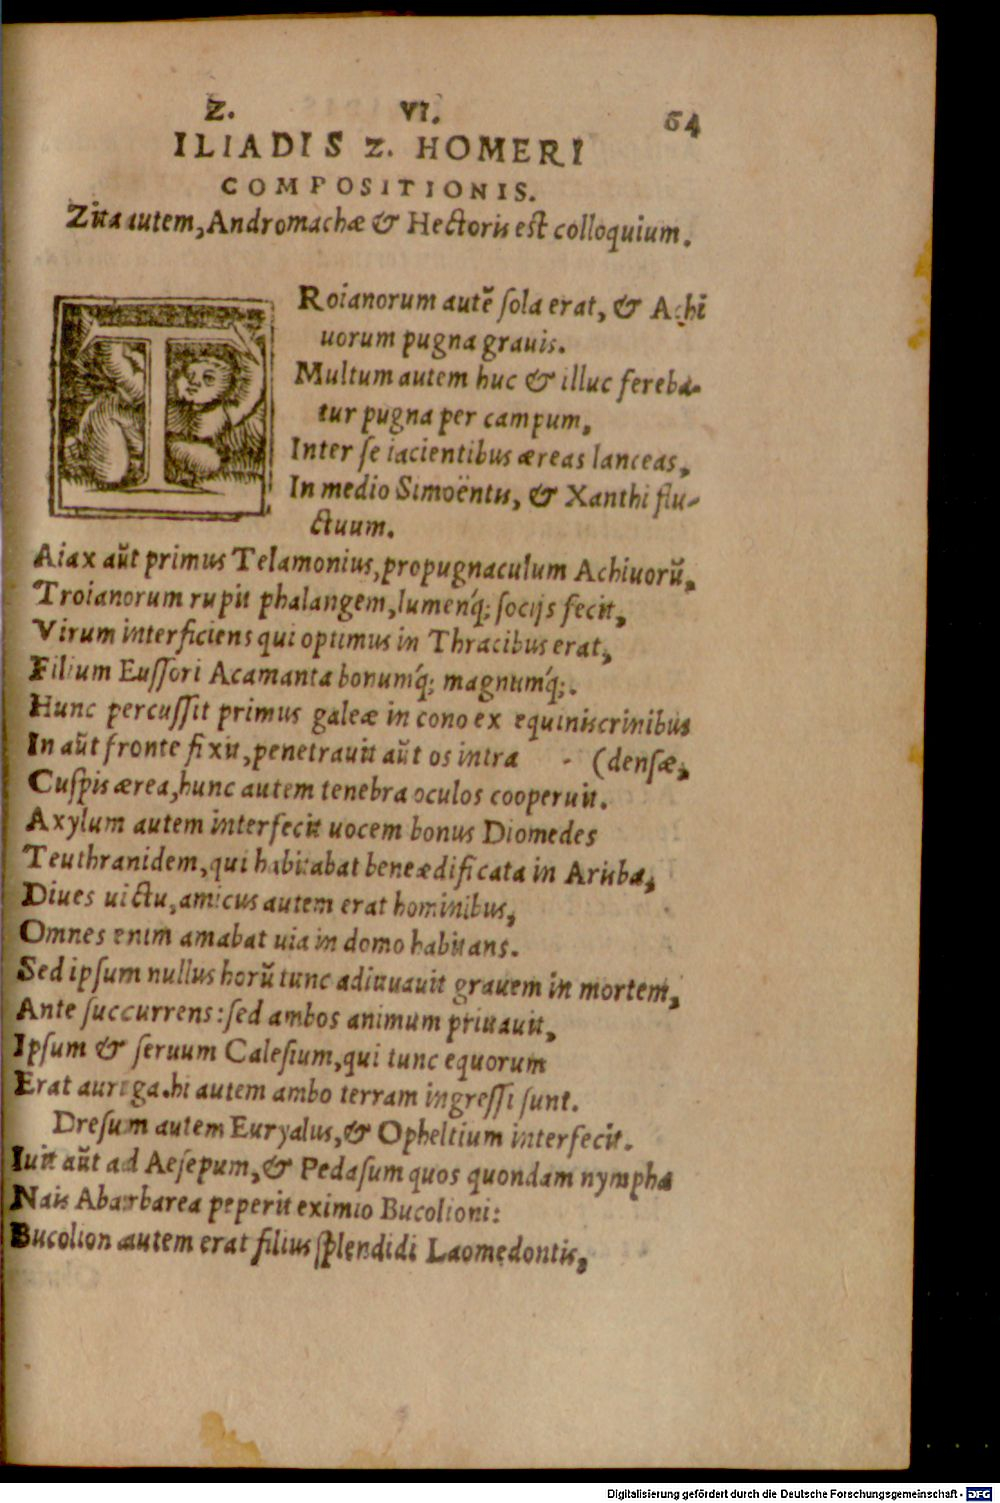 Z. VI. 64
ILIADIS Z. HOMERI
COMPOSITIONIS.
Zita autem, Andromachæ & Hectoris est colloquium.
TRoianorum autē ſola erat, & Achi
uorum pugna grauis.
Multum autem huc & illuc fereba-
tur pugna per campum,
Inter ſe iacientibus æreas lanceas,
In medio Simoëntis, & Xanthi flu-
ctuum.
Aiax aūt primus Telamonius, propugnaculum Achiuorū,
Troianorum rupit phalangem, lumenq́; ſocijs fecit,
Virum interficiens qui optimus in Thracibus erat,
Filium Euſſori Acamanta bonumq́; magnumq́;.
Hunc percuſſit primus galeæ in cono ex equinis crinibus
In aūt fronte fixit, penetrauit aūt os intra (denſæ,
Cuſpis ærea, hunc autem tenebra oculos cooperuit.
Axylum autem interfecit uocem bonus Diomedes
Teuthranidem, qui habitabat bene ædificata in Arisba,
Diues uictu, amicus autem erat hominibus,
Omnes enim amabat uia in domo habitans.
Sed ipſum nullus horū tunc adiuuauit grauem in mortem,
Ante ſuccurrens: ſed ambos animum priuauit,
Ipſum & ſeruum Caleſium, qui tunc equorum
Erat auriga. hi autem ambo terram ingreſſi ſunt.
Dreſum autem Euryalus, & Opheltium interfecit.
Iuit aūt ad Aeſepum, & Pedaſum quos quondam nympha
Nais Abarbarea peperit eximio Bucolioni:
Bucolion autem erat filius ſplendidi Laomedontis,
Digitalisierung gefördert durch die Deutsche Forschungsgemeinschaft - DFG